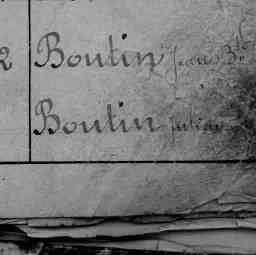 2 Boutin Jean Bte
Boutin Julien